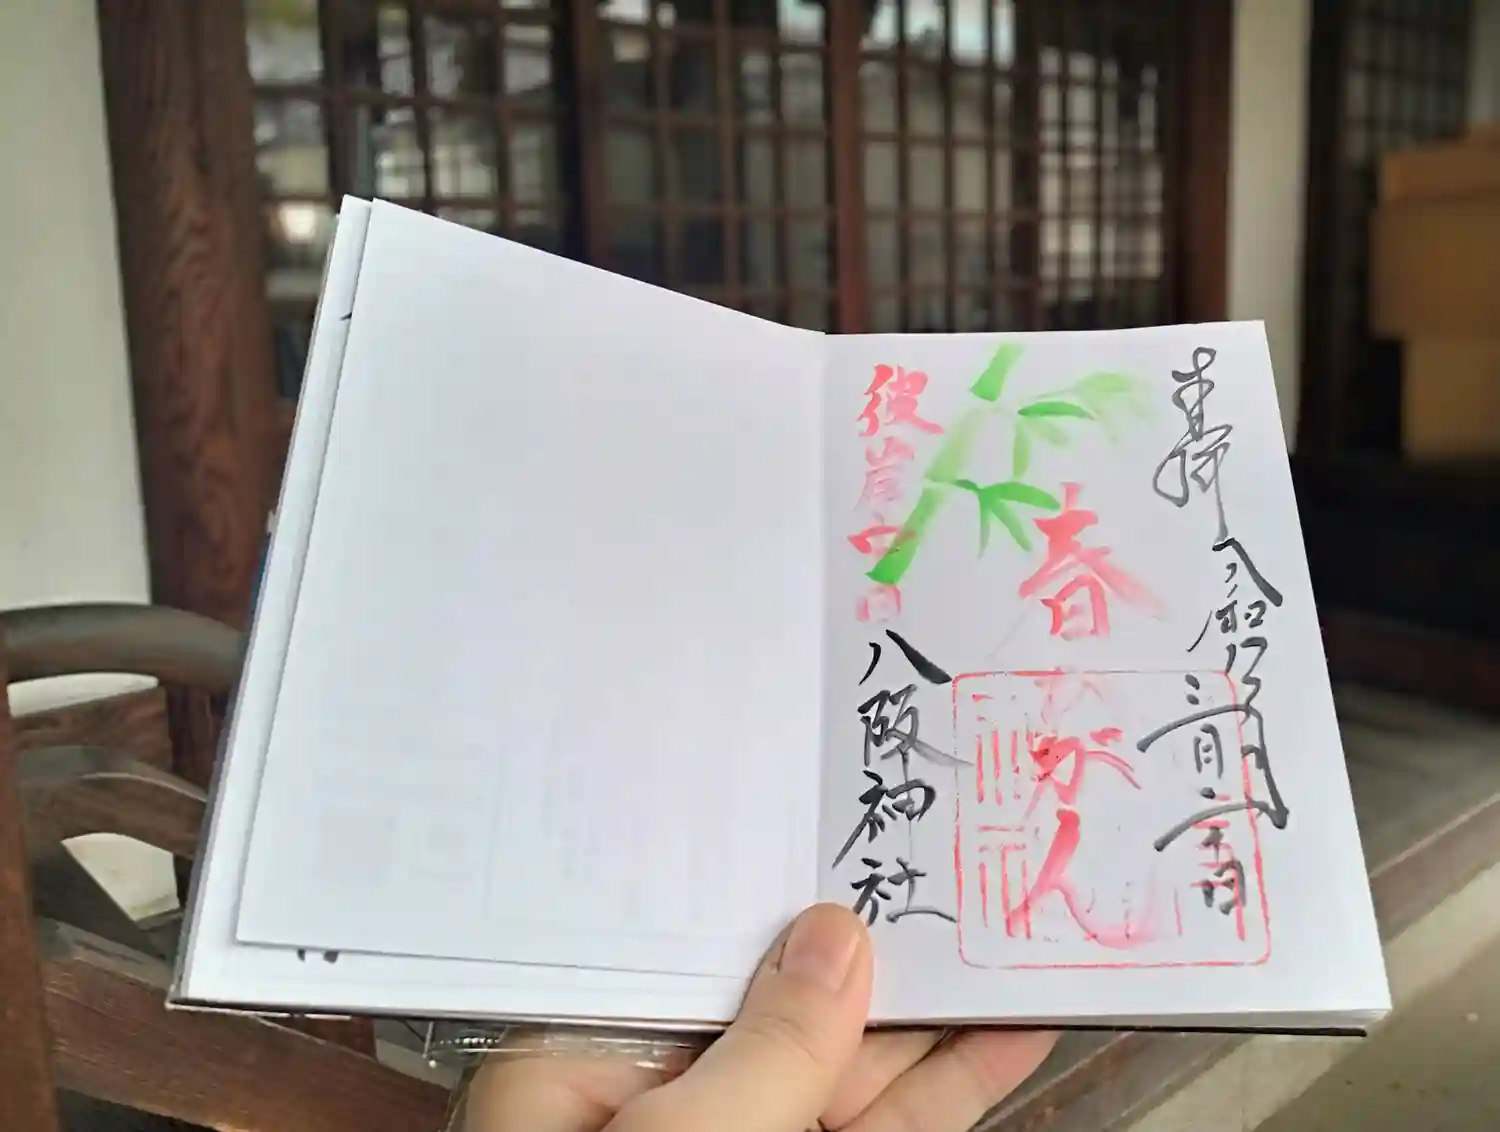 奉拝
令和
三月二十日
春ひがん
彼岸中日
八阪神社